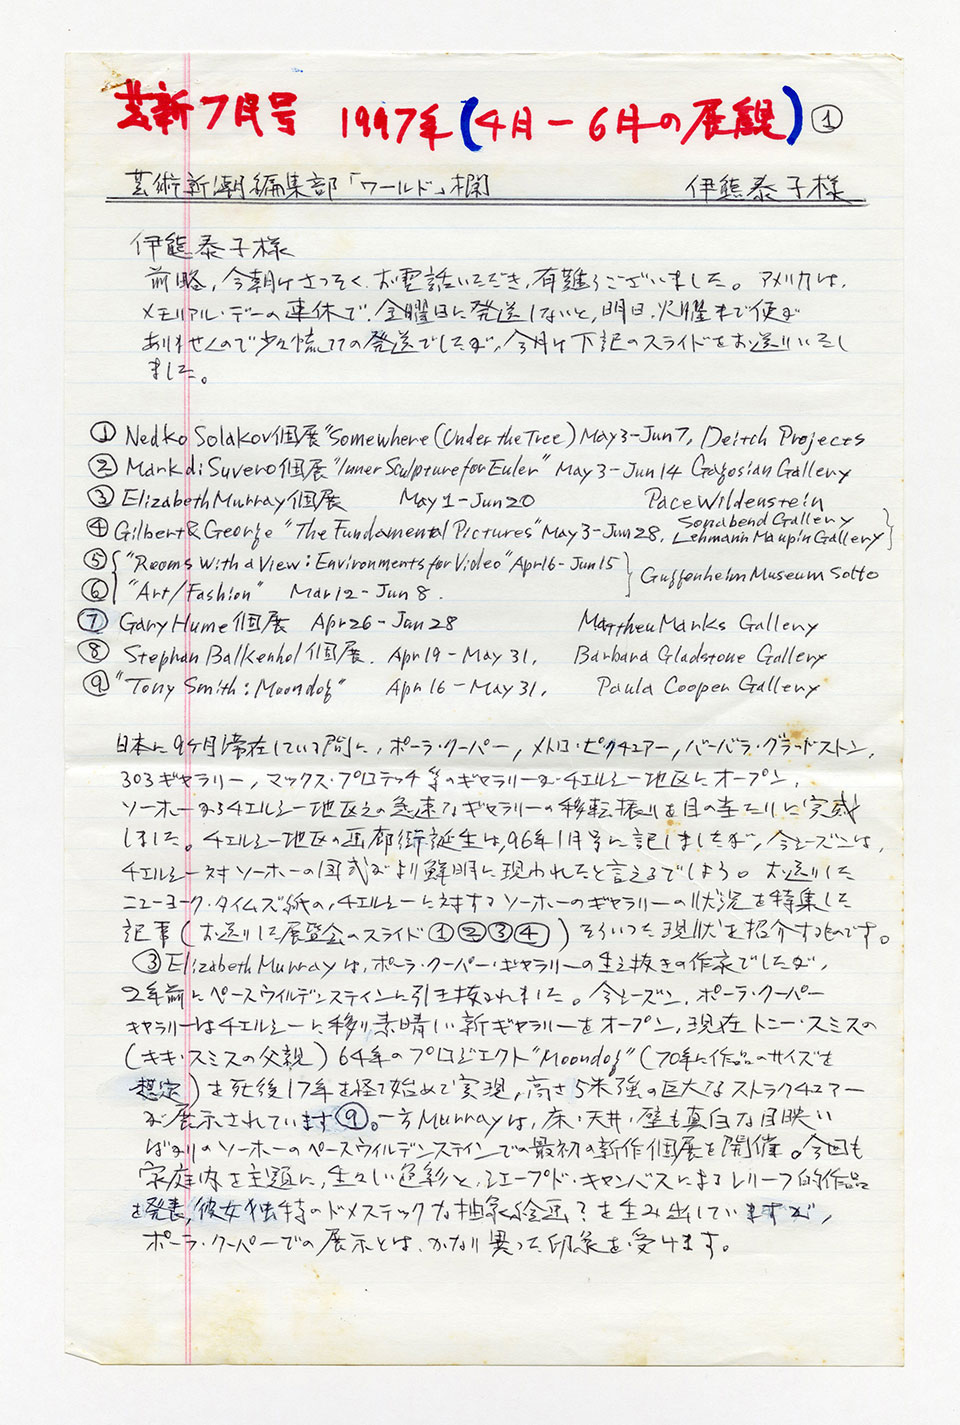 芸新7月号 1997年(4月-6月の展観) ①
芸術新潮編集部「ワールド」欄 伊熊泰子様
伊熊泰子様
前略,今朝はさっそく お電話いただき,有難うございました。アメリカは,
メモリアル・デーの連休で,金曜日に発送しないと,明日,火曜まで便が
ありませんので少々慌てての発送でしたが,今月は下記のスライドをお送りいたし
ました。
① Nedko Solakov個展"Somewhere (Under the Tree) May 3-Jun 7, Deitch Projects
② Mark di Suvero個展"Inner Sculpture for Euler" May 3-Jun 14 Gagosian Gallery
③ Elizabeth Murray個展 May 1-Jun 20 PaceWildenstein
④ Gilbert & George "The Fundamental Pictures" May 3-Jun 28, Sonnabend Gallery
Lehmann Maupin Gallery
⑤ "Rooms With a View: Environments for Video" Apr 16-Jun 15
Guggenheim Museum SoHo
⑥ "Art/Fashion" Mar 12-Jun 8.
⑦ Gary Hume個展 Apr 26-Jun 28 Matthew Marks Gallery
⑧ Stephan Balkenhol個展. Apr 19-May 31, Barbara Gladstone Gallery
⑨ "Tony Smith: Moondog" Apr 16-May 31, Paula Cooper Gallery
日本に9ヶ月滞在している間に,ポーラ・クーパー,メトロ・ピクチュアー,バーバラ・グラッドストン,
303ギャラリー,マックス・プロテッチ等のギャラリーが,チェルシー地区にオープン,
ソーホーからチェルシー地区への急速なギャラリーの移転振りを目の当たりに実感
しました。チェルシー地区の画廊街誕生は,96年1月号に記しましたが,今シーズンは,
チェルシー対ソーホーの図式がより鮮明に現われたと言えるでしょう。お送りした
ニューヨーク・タイムズ紙の,チェルシーに対するソーホーのギャラリーの状況を特集した
記事(お送りした展覧会のスライド①②③④)そういった現状を紹介するものです。
③Elizabeth Murrayは,ポーラ・クーパー・ギャラリーの生え抜きの作家でしたが,
2年前にペースウィルデンスティンに引き抜かれました。今シーズン,ポーラ・クーパー
ギャラリーはチェルシーに移り素晴しい新ギャラリーをオープン,現在トニー・スミスの
(キキ・スミスの父親)64年のプロジェクト"Moondog"(70年に作品のサイズを
想定)を死後17年を経て始めて実現,高さ5米強の巨大なストラクチュアー
が展示されています⑨。一方Murrayは,床・天井・壁も真白な目映い
ばかりのソーホーのペースウィルデンスティンでの最初の新作個展を開催。今回も
家庭内を主題に,生々しい色彩と,シェープド・キャンバスによるレリーフ的作品
を発表,彼女独特のドメスティックな抽象絵画?を生み出していますが,
ポーラ・クーパーでの展示とは,かなり異った印象を受けます。